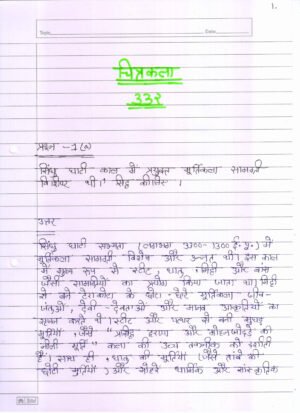 1.
Topic
Date
चित्रकला
332
प्रश्न -1(a)
सिंधु घाटी काल में प्रयुक्त मूर्तिकला सामग्री
विशिष्ट थी। सिद्ध कीजिए।
उत्तर
सिंधु घाटी सभ्यता (लगभग 3300-1300 ई.पू.) में
मूर्तिकला सामग्री विशेष और उन्नत थी। इस काल
में मुख्य रूप से स्टोन, धातु, मिट्टी और कांस्य
जैसी सामग्रियों का प्रयोग किया जाता था। मिट्टी
से बने टेराकोटा के छोटे-छोटे मूर्तिकला जीव-
जंतुओं, देवी-देवताओं और मानव आकृतियों का
करते थे। स्टोन और पत्थर से बनी
मूर्तियाँ, जैसे हड़प्पा और मोहनजोदड़ो की
मूर्ति" कला की उच्च तकनीक को दर्शाती
है। साथ ही, धातु की मूर्तियाँ (जैसे तांबे की
छोटी मूर्तियाँ) और धार्मिक और सांस्कृतिक